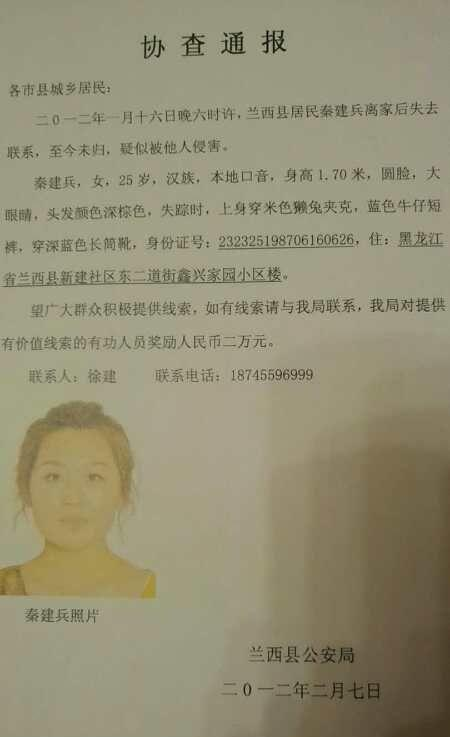 协查通报
各市县城乡居民：
二0一二年一月十六日晚六时许，兰西县居民秦建兵离家后失去
联系，至今未归，疑似被他人侵害。
秦建兵，女，25岁，汉族，本地口音，身高1.70米，圆脸，大
眼睛，头发颜色深棕色，失踪时，上身穿米色獭兔夹克，蓝色牛仔短
裤，穿深蓝色长筒靴，身份证号：232325198706160626，住：黑龙江
省兰西县新建社区东二道街鑫兴家园小区楼。
望广大群众积极提供线索，如有线索请与我局联系，我局对提供
有价值线索的有功人员奖励人民币二万元。
联系人：徐建 联系电话：18745596999
秦建兵照片
兰西县公安局
二0一二年二月七日